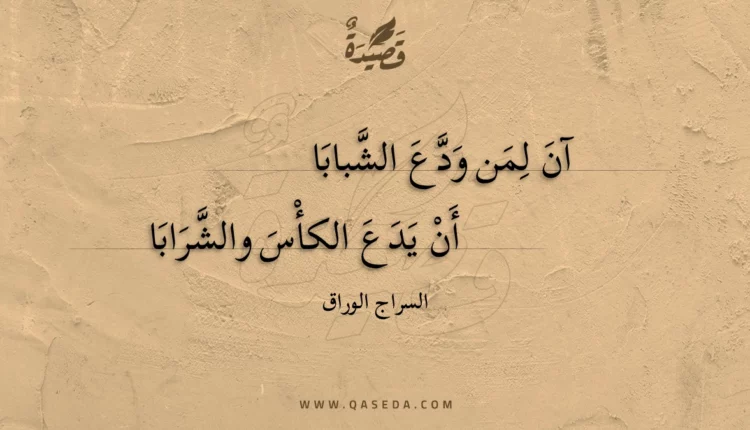 قَصِيدَةٌ
آنَ لِمَن وَدَّعَ الشَّبابَا
أَنْ يَدَعَ الكأْسَ والشَّرَابَا
السراج الوراق
WWW.QASEDA.COM